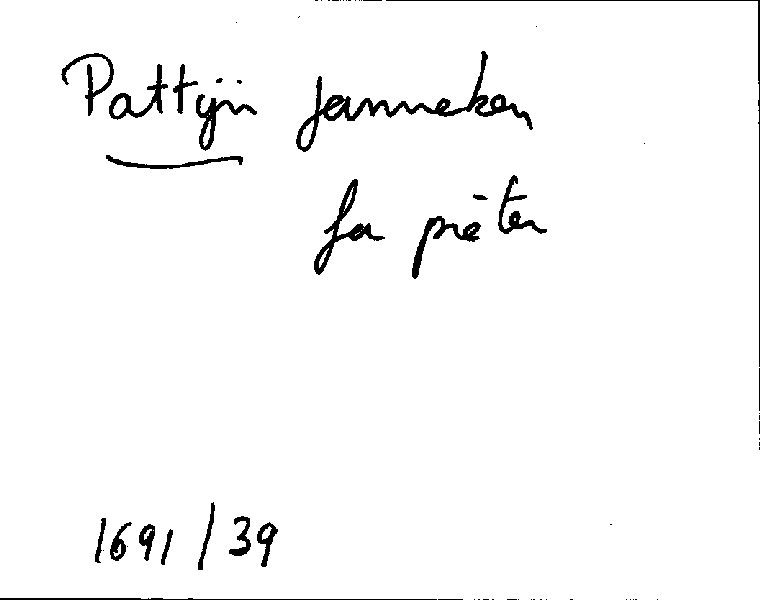 Pattijn Janneken
fa pieter
1691 / 39